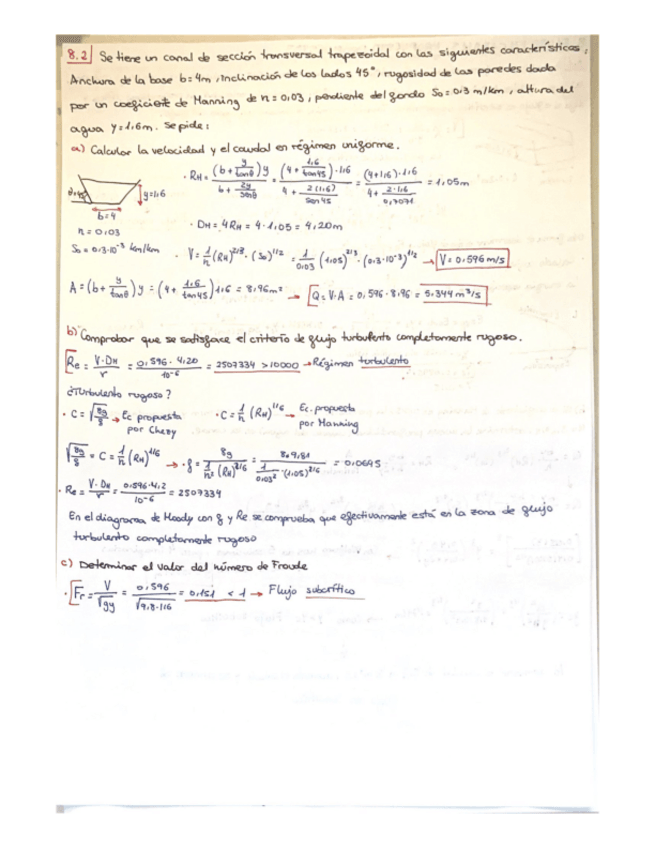 8.2 Se tiene un canal de sección transversal trapezoidal con las siguientes características:
Anchura de la base b=4m, inclinación de los lados 45°, rugosidad de las paredes dada
por un coeficiente de Manning de n=0,03, pendiente del fondo S₀=0,3 m/km, altura del
agua y=1,6m. Se pide:
a) Calcular la velocidad y el caudal en régimen uniforme.
· RH = (b + y/tanθ)y / (b + 2y/senθ) = (4 + 1,6/tan45)·1,6 / (4 + 2(1,6)/sen45) = (4+1,6)·1,6 / (4 + 2·1,6/0,7071) = 1,05m
θ=45 y=1,6
b=4
n=0,03
· DH = 4RH = 4·1,05 = 4,20m
S₀=0,3·10⁻³ km/km · V = 1/n (RH)^2/3 · (S₀)^1/2 = 1/0,03 (1,05)^2/3 · (0,3·10⁻³)^1/2 → V = 0,596 m/s
A = (b + y/tanθ)y = (4 + 1,6/tan45)1,6 = 8,96m² → Q = V·A = 0,596·8,96 = 5,344 m³/s
b) Comprobar que se satisface el criterio de flujo turbulento completamente rugoso.
Re = V·DH/ν = 0,596·4,20/10⁻⁶ = 2507334 > 10000 → Régimen turbulento
¿Turbulento rugoso?
· C = √(8g/f) → Ec propuesta por Chezy · C = 1/n (RH)^1/6 → Ec. propuesta por Manning
√(8g/f) = C = 1/n (RH)^1/6 → · f = 8g / (1/n² (RH)^2/6) = 8·9,81 / (1/0,03² · (1,05)^2/6) = 0,0695
· Re = V·DH/ν = 0,596·4,2/10⁻⁶ = 2507334
En el diagrama de Moody con f y Re se comprueba que efectivamente está en la zona de flujo
turbulento completamente rugoso
c) Determinar el valor del número de Froude
· Fr = V/√gy = 0,596/√9,8·1,6 = 0,151 < 1 → Flujo subcrítico